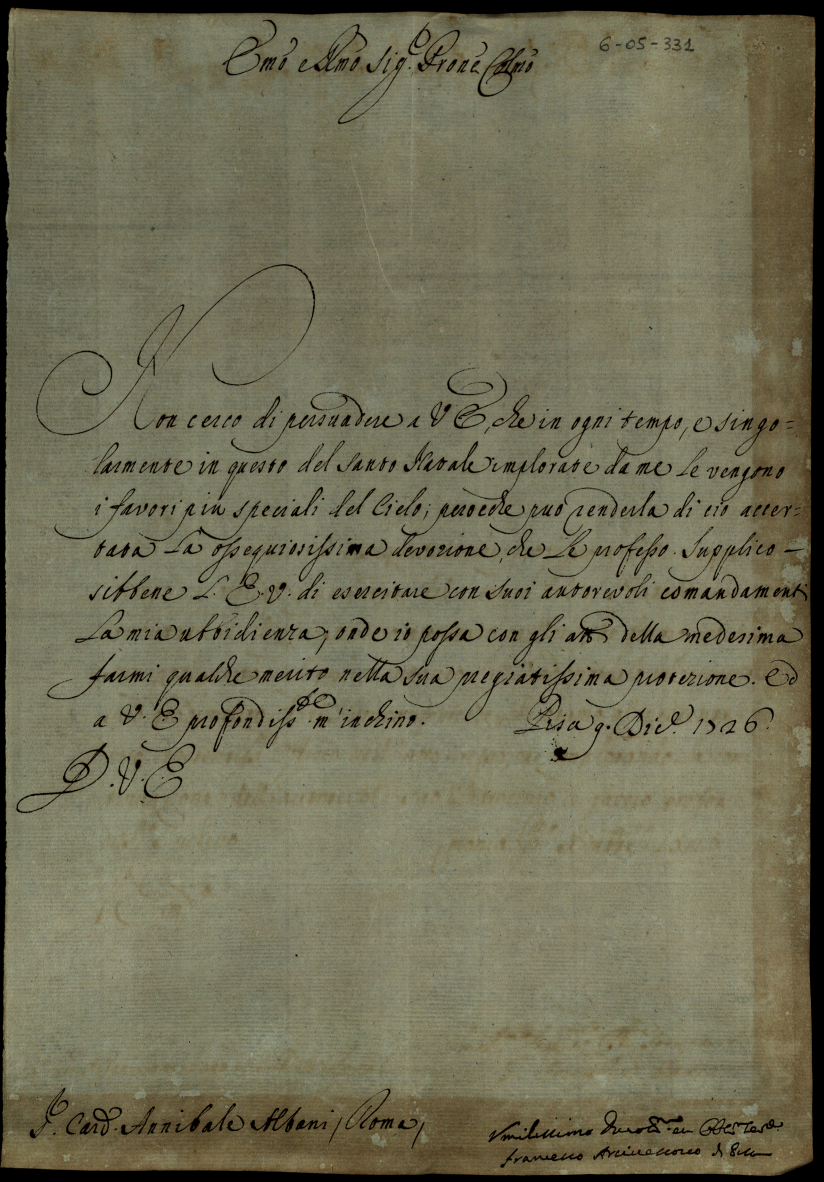 6-05-331
Emo e Rmo Sig.r Prone Colmo
Non cerco di persuadere a V E, che in ogni tempo, e singo=
larmente in questo del Santo Natale implorate da me Le vengono
i favori più speciali del Cielo; perocche può renderla di ciò accer=
tata La ossequiosissima devozione, che Le professo. Supplico
sibbene L. E. V. di esercitare con suoi autorevoli comandamenti
La mia ubbidienza, onde io possa con gli atti della medesima
farmi qualche merito nella sua pregiatissima protezione. Ed
a V. E profondiss.te m'inchino. Pisa 9. Dic.e 1726.
D. V. E
Card. Annibale Albani / Roma /
Umilissimo
Francesco Arcivescovo di Pisa